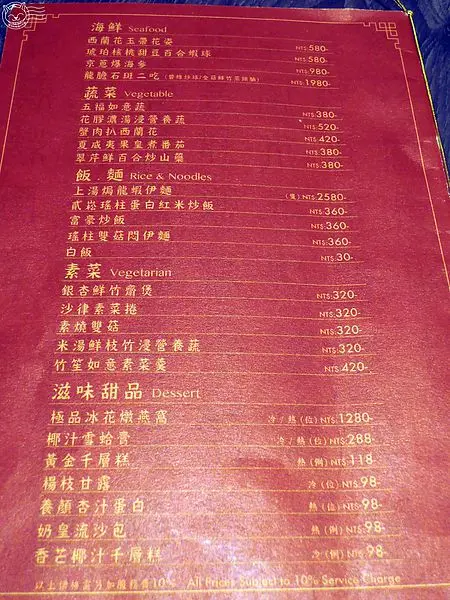 海鮮 Seafood
西蘭花玉帶花姿 NT$:580-
琥珀核桃甜豆百合蝦球 NT$:580-
京蔥爆海參 NT$:980-
龍膽石斑二吃 NT$:1980-
蔬菜 Vegetable
五福如意蔬 NT$:380-
花膠濃湯浸營養蔬 NT$:520-
蟹肉扒西蘭花 NT$:420-
夏威夷果皇煮番茄 NT$:380-
翠芹鮮百合炒山藥 NT$:380-
飯.麵 Rice & Noodles
上湯焗龍蝦伊麵 (隻) NT$:2580-
貳崧瑤柱蛋白紅米炒飯 NT$:360-
富豪炒飯 NT$:360-
瑤柱雙菇悶伊麵 NT$:360-
白飯 NT$:30-
素菜 Vegetarian
銀杏鮮竹齋煲 NT$:320-
沙律素菜捲 NT$:320-
素燒雙菇 NT$:320-
米湯鮮枝竹浸營養蔬 NT$:320-
竹笙如意素菜羹 NT$:420-
滋味甜品 Dessert
極品冰花燉燕窩 冷/熱(位) NT$:1280-
椰汁雪蛤膏 冷/熱(位) NT$:288-
黃金千層糕 熱(例) NT$:118-
楊枝甘露 冷(位) NT$:98-
養顏杏汁蛋白 熱(位) NT$:98-
奶皇流沙包 熱(例) NT$:98-
香芒椰汁千層糕 冷(例) NT$:98-
以上價格需另加服務費10% All Prices Subject to 10% Service Charge